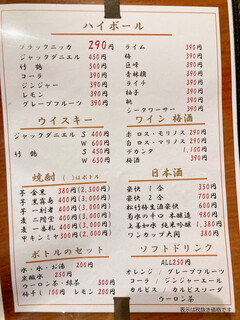 ハイボール
ブラックニッカ 290円
ジャックダニエル 450円
竹鶴 500円
コーラ 390円
ジンジャー 390円
レモン 390円
グレープフルーツ 390円
ライム 390円
梅 390円
巨峰 390円
青林檎 390円
ライチ 390円
柚子 390円
桃 390円
シークワーサー 390円
ウイスキー
ジャックダニエル S 400円
W 600円
竹鶴 S 450円
W 650円
ワイン 梅酒
赤 ロス・モリノス 290円
白 ロス・マリノス 290円
デカンタ 1,100円
梅酒 390円
焼酎 ( )はボトル
芋 金黒 380円(2,000円)
芋 黒霧島 400円(2,500円)
芋 一刻者 400円(2,500円)
麦 二階堂 400円(2,500円)
麦 一番札 400円(2,500円)
甲 キンミヤ 300円(2,500円)
日本酒
豪快 1合 350円
豪快 2合 700円
お竹梅生酒豪快 700円
菊水の辛口 本醸造 980円
上善如水 純米吟醸 1,380円
ワンカップ大関 380円
ボトルのセット
水・氷・お湯 200円
炭酸水 250円
ウーロン茶・緑茶 500円
梅干し 100円 レモン 200円
ソフトドリンク
ALL250円
オレンジ / グレープフルーツ
コーラ / ジンジャーエール
カルピス / カルピスソーダ
ウーロン茶
表示は税抜き価格です